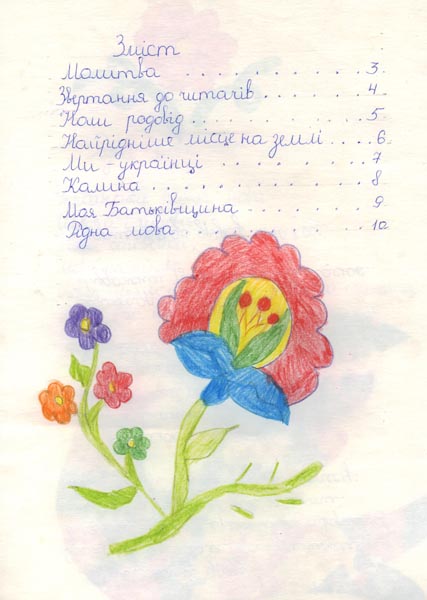 Зміст
Молитва . . . . . . . . . . . . 3
Звертання до читачів . . . . . . 4
Наш родовід . . . . . . . . . . 5
Найрідніше місце на землі . . . 6
Ми - українці . . . . . . . . . 7
Калина . . . . . . . . . . . . . 8
Моя Батьківщина . . . . . . . . 9
Рідна мова . . . . . . . . . . . 10